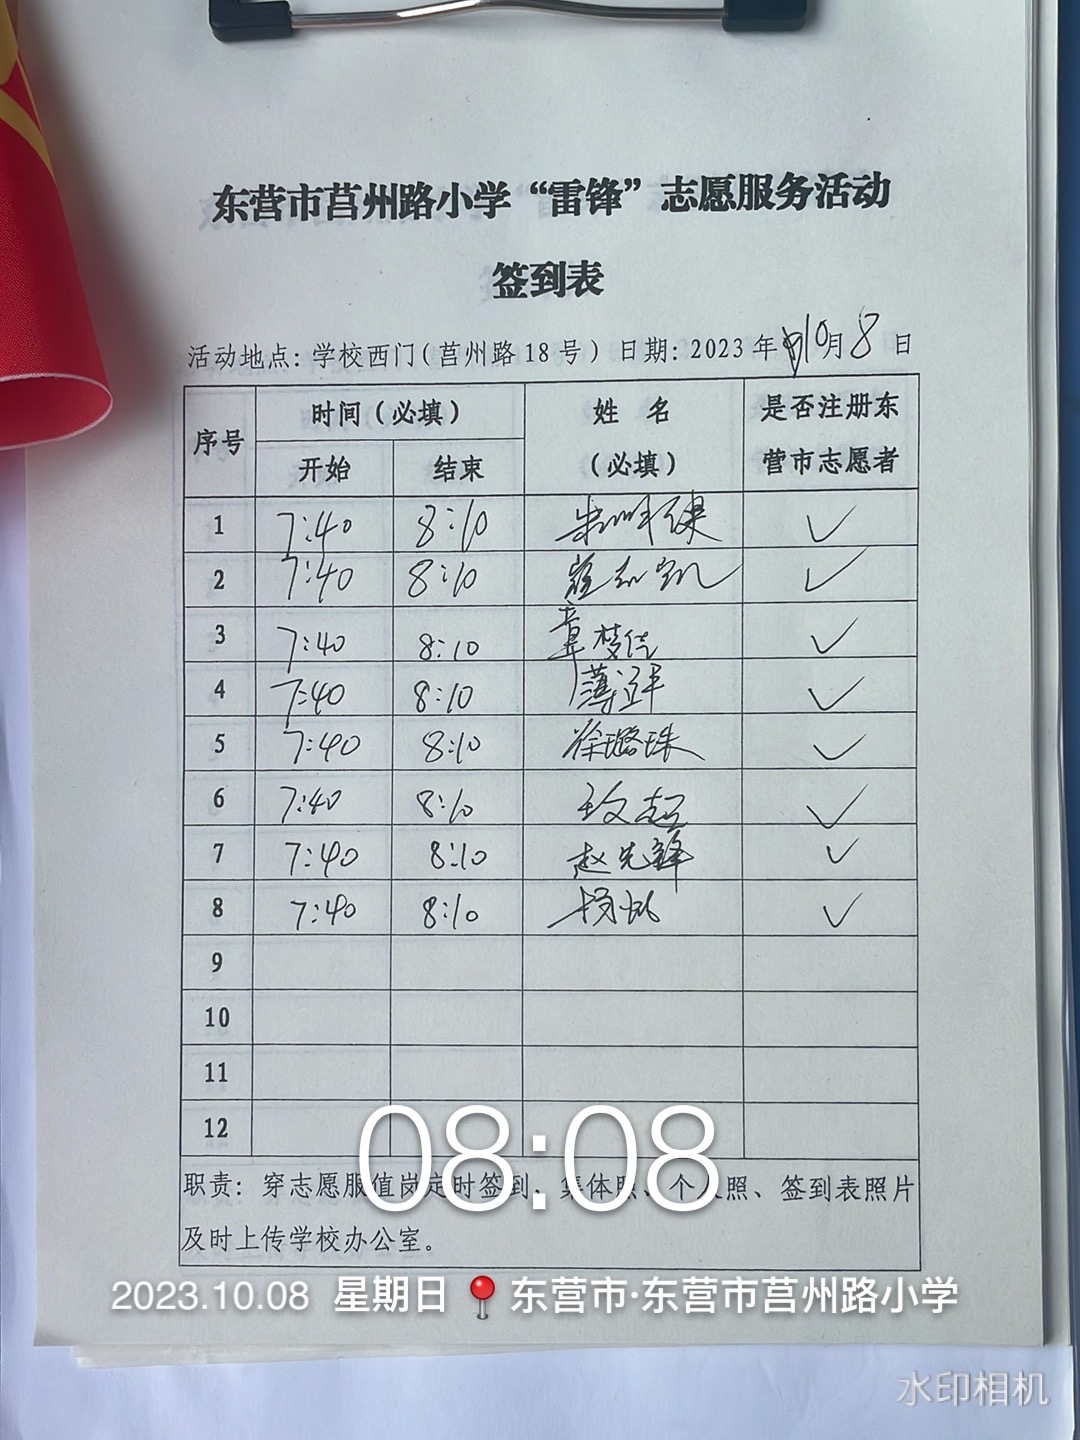 东营市莒州路小学“雷锋”志愿服务活动
签到表
活动地点: 学校西门(莒州路18号) 日期: 2023年10月8日
序号 时间(必填) 姓 名 (必填) 是否注册东营市志愿者
开始 结束
1 7:40 8:10 ✓
2 7:40 8:10 ✓
3 7:40 8:10 章梦佳 ✓
4 7:40 8:10 薄 ✓
5 7:40 8:10 徐璐珠 ✓
6 7:40 8:10 ✓
7 7:40 8:10 赵先锋 ✓
8 7:40 8:10 ✓
9
10
11
12
08:08
职责: 穿志愿服值岗定时签到, 集体照、个人照、签到表照片
及时上传学校办公室。
2023.10.08 星期日 东营市·东营市莒州路小学
水印相机